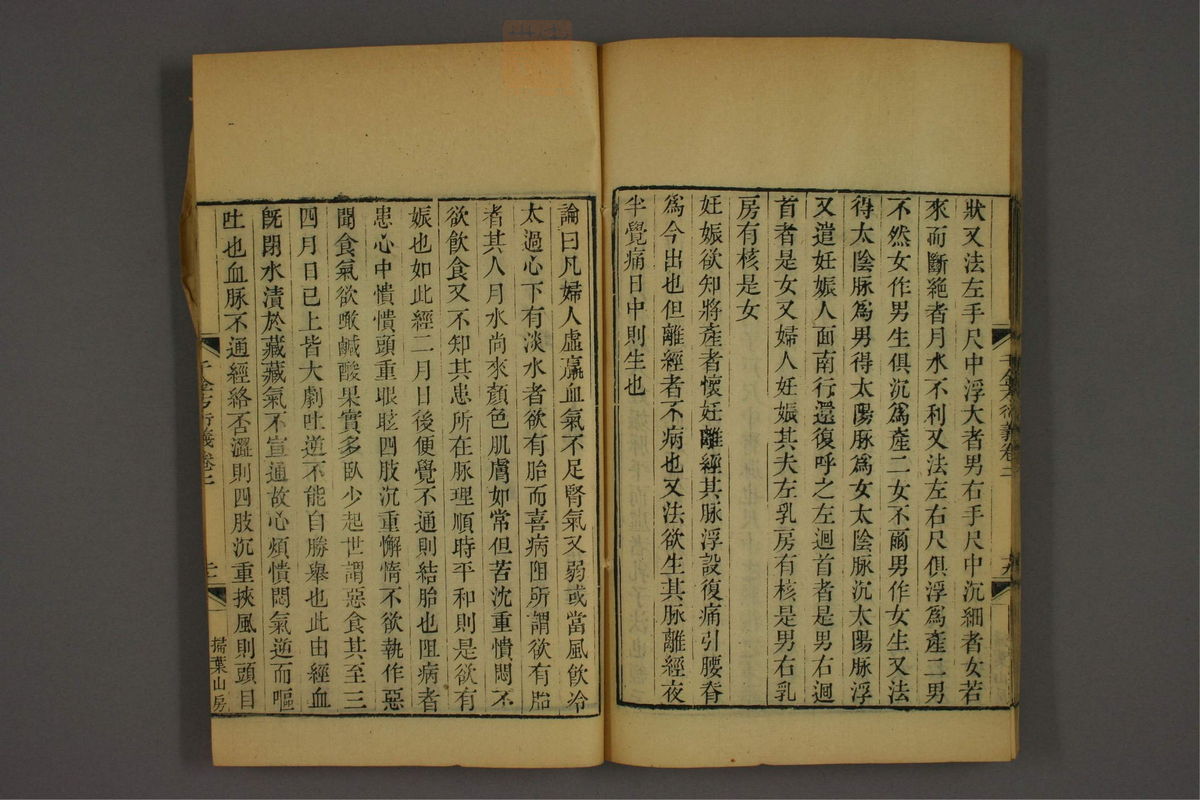 狀又法左手尺中浮大者男右手尺中沉細者女若
來而斷絶者月水不利又法左右尺俱浮爲產二男
不然女作男生俱沉爲產二女不爾男作女生又法
得太陰脉爲男得太陽脉爲女太陰脉沉太陽脉浮
又遣妊娠人面南行還復呼之左迴首者是男右迴
首者是女又婦人妊娠其夫左乳房有核是男右乳
房有核是女
妊娠欲知將產者懷妊離經其脉浮設復痛引腰脊
爲今出也但離經者不病也又法欲生其脉離經夜
半覺痛日中則生也
論曰凡婦人虛羸血氣不足腎氣又弱或當風飲冷
太過心下有淡水者欲有胎而喜病阻所謂欲有胎
者其人月水尚來顏色肌膚如常但苦沈重憒悶不
欲飲食又不知其患所在脉理順時平和則是欲有
娠也如此經二月日後便覺不通則結胎也阻病者
患心中憒憒頭重眼眩四肢沉重懈惰不欲執作惡
聞食氣欲噉鹹酸果實多臥少起世謂惡食其至三
四月日已上皆大劇吐逆不能自勝舉也此由經血
旣閉水漬於藏藏氣不宣通故心煩憒悶氣逆而嘔
吐也血脉不通經絡否澀則四肢沉重挾風則頭目
千金方衍義卷二
掃葉山房